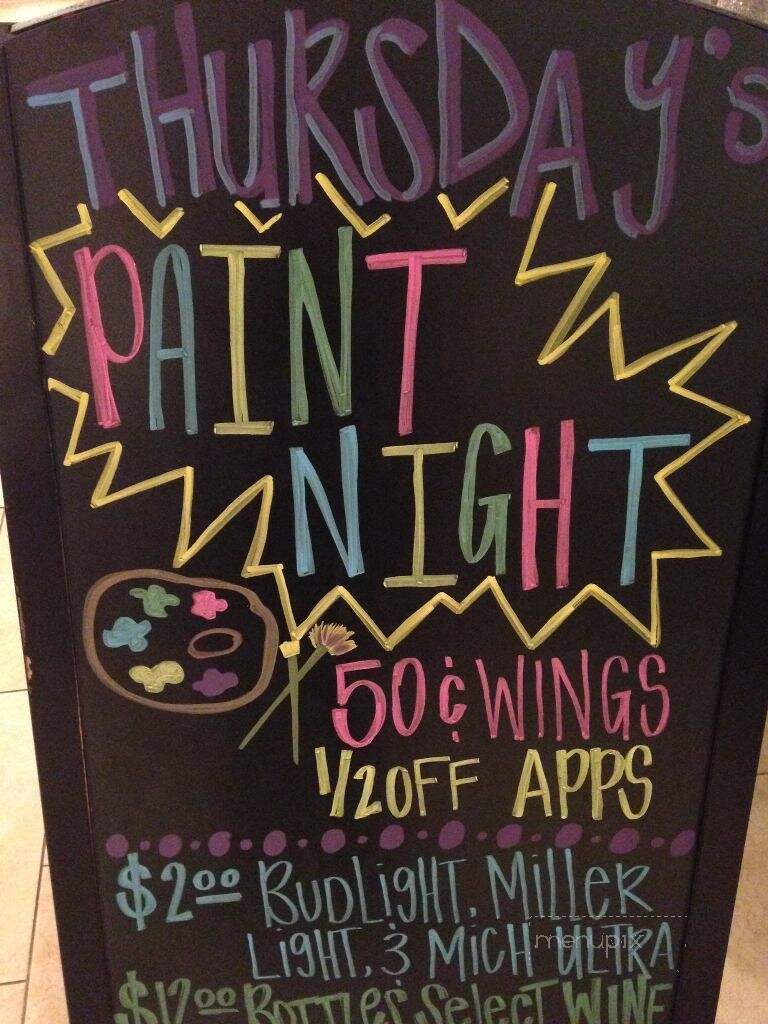 THURSDAY's
PAINT
NIGHT
50¢ WINGS
1/2 OFF APPS
$2.00 BUDLIGHT, MILLER
LIGHT, & MICH ULTRA
menupix
$12.00 BOTTLES SELECT WINE